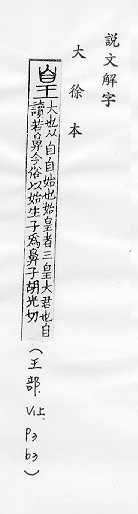 說文解字
大徐本
皇
大也从自自始也始皇者三皇大君也自
讀若鼻今俗以始生子爲鼻子胡光切
(王部.VI上.P3b3)